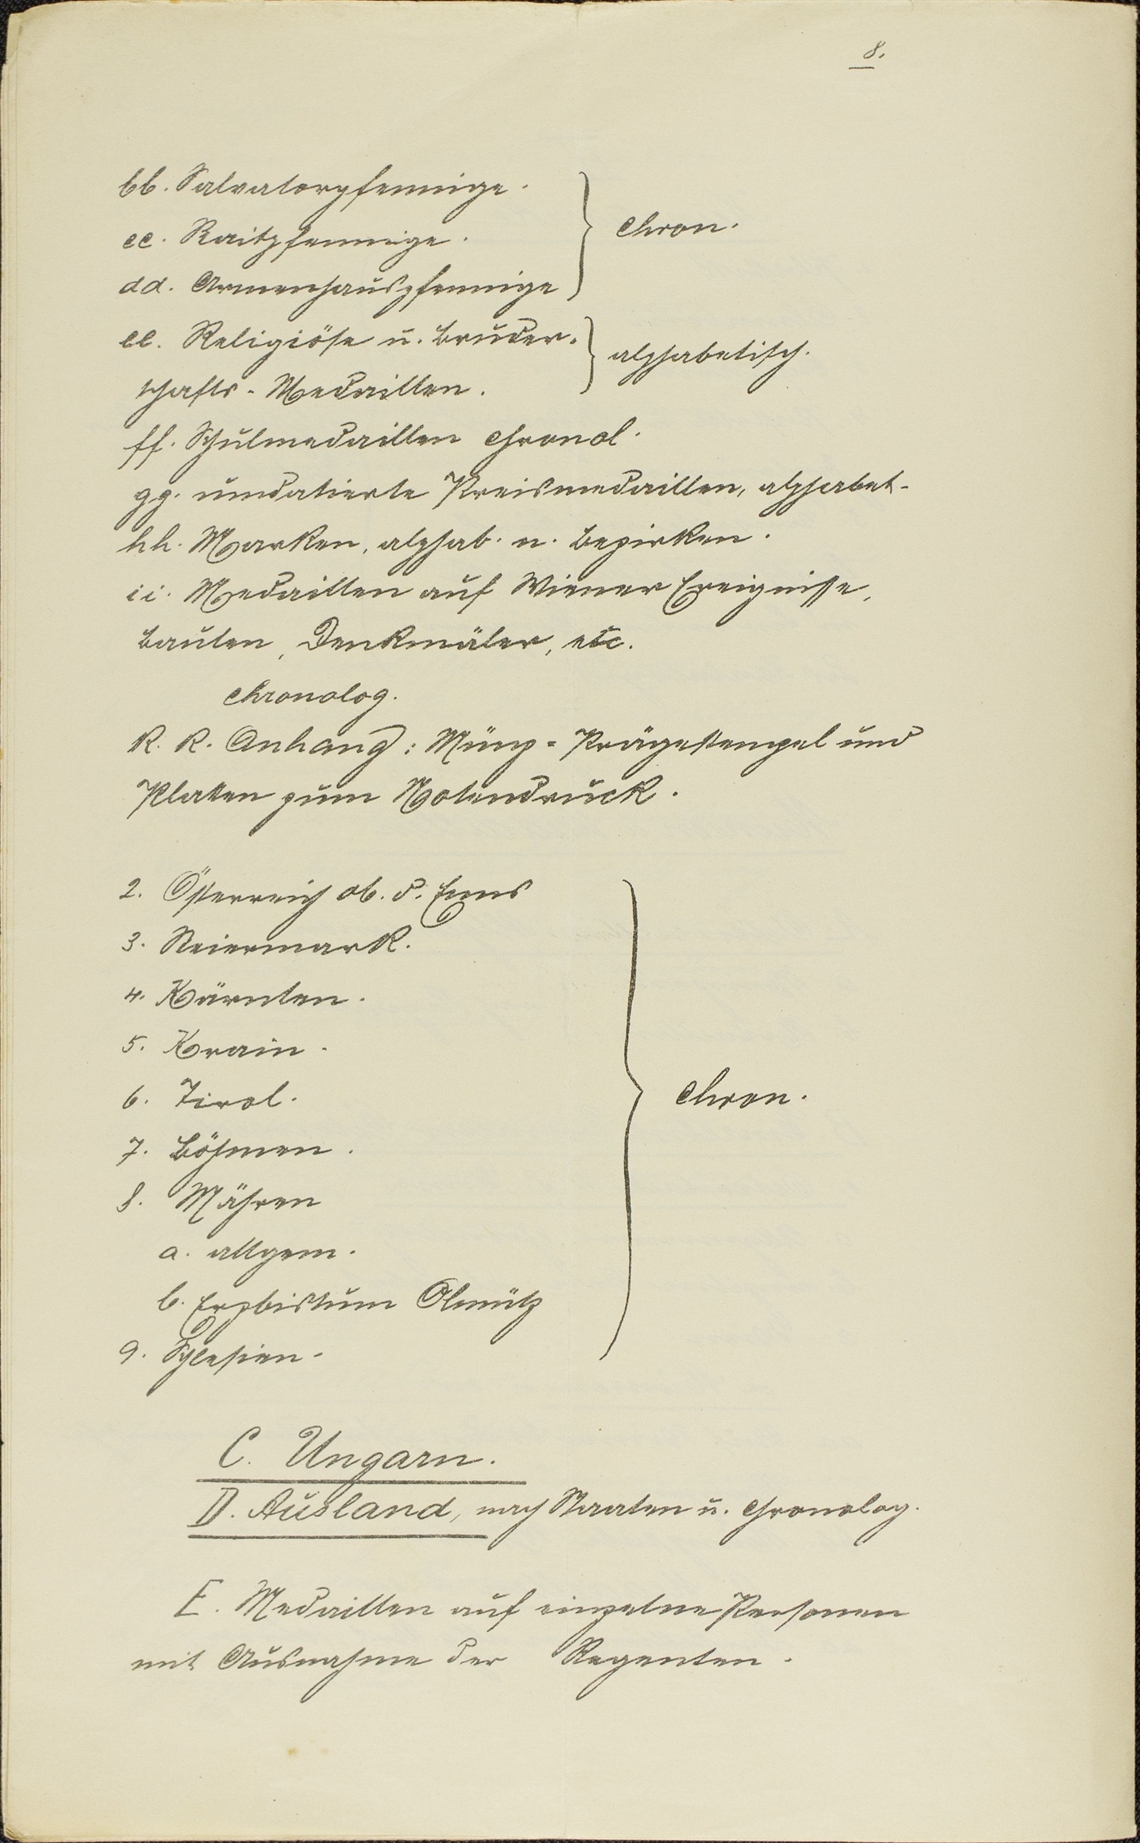 8.
bb. Salvatorpfennige.
cc. Raitpfennige.
chron.
dd. Armenhauspfennige
ee. Religiöse u. Bruder-
alphabetisch.
schafts-Medaillen.
ff. Schulmedaillen chronol.
gg. undatierte Preismedaillen, alphabet.
hh. Marken, alphab. n. Bezirken.
ii. Medaillen auf Wiener Ereignisse,
Bauten, Denkmäler, etc.
chronolog.
k. k. Anhang: Münz-Prägestempel und
Platten zum Notendruck.
2. Österreich ob. d. Enns
3. Steiermark.
4. Kärnten.
5. Krain.
6. Tirol.
chron.
7. Böhmen.
8. Mähren
a. allgem.
b. Erzbistum Olmütz
9. Schlesien.
C. Ungarn.
D. Ausland, nach Staaten u. chronolog.
E. Medaillen auf einzelne Personen
mit Ausnahme der Regenten.